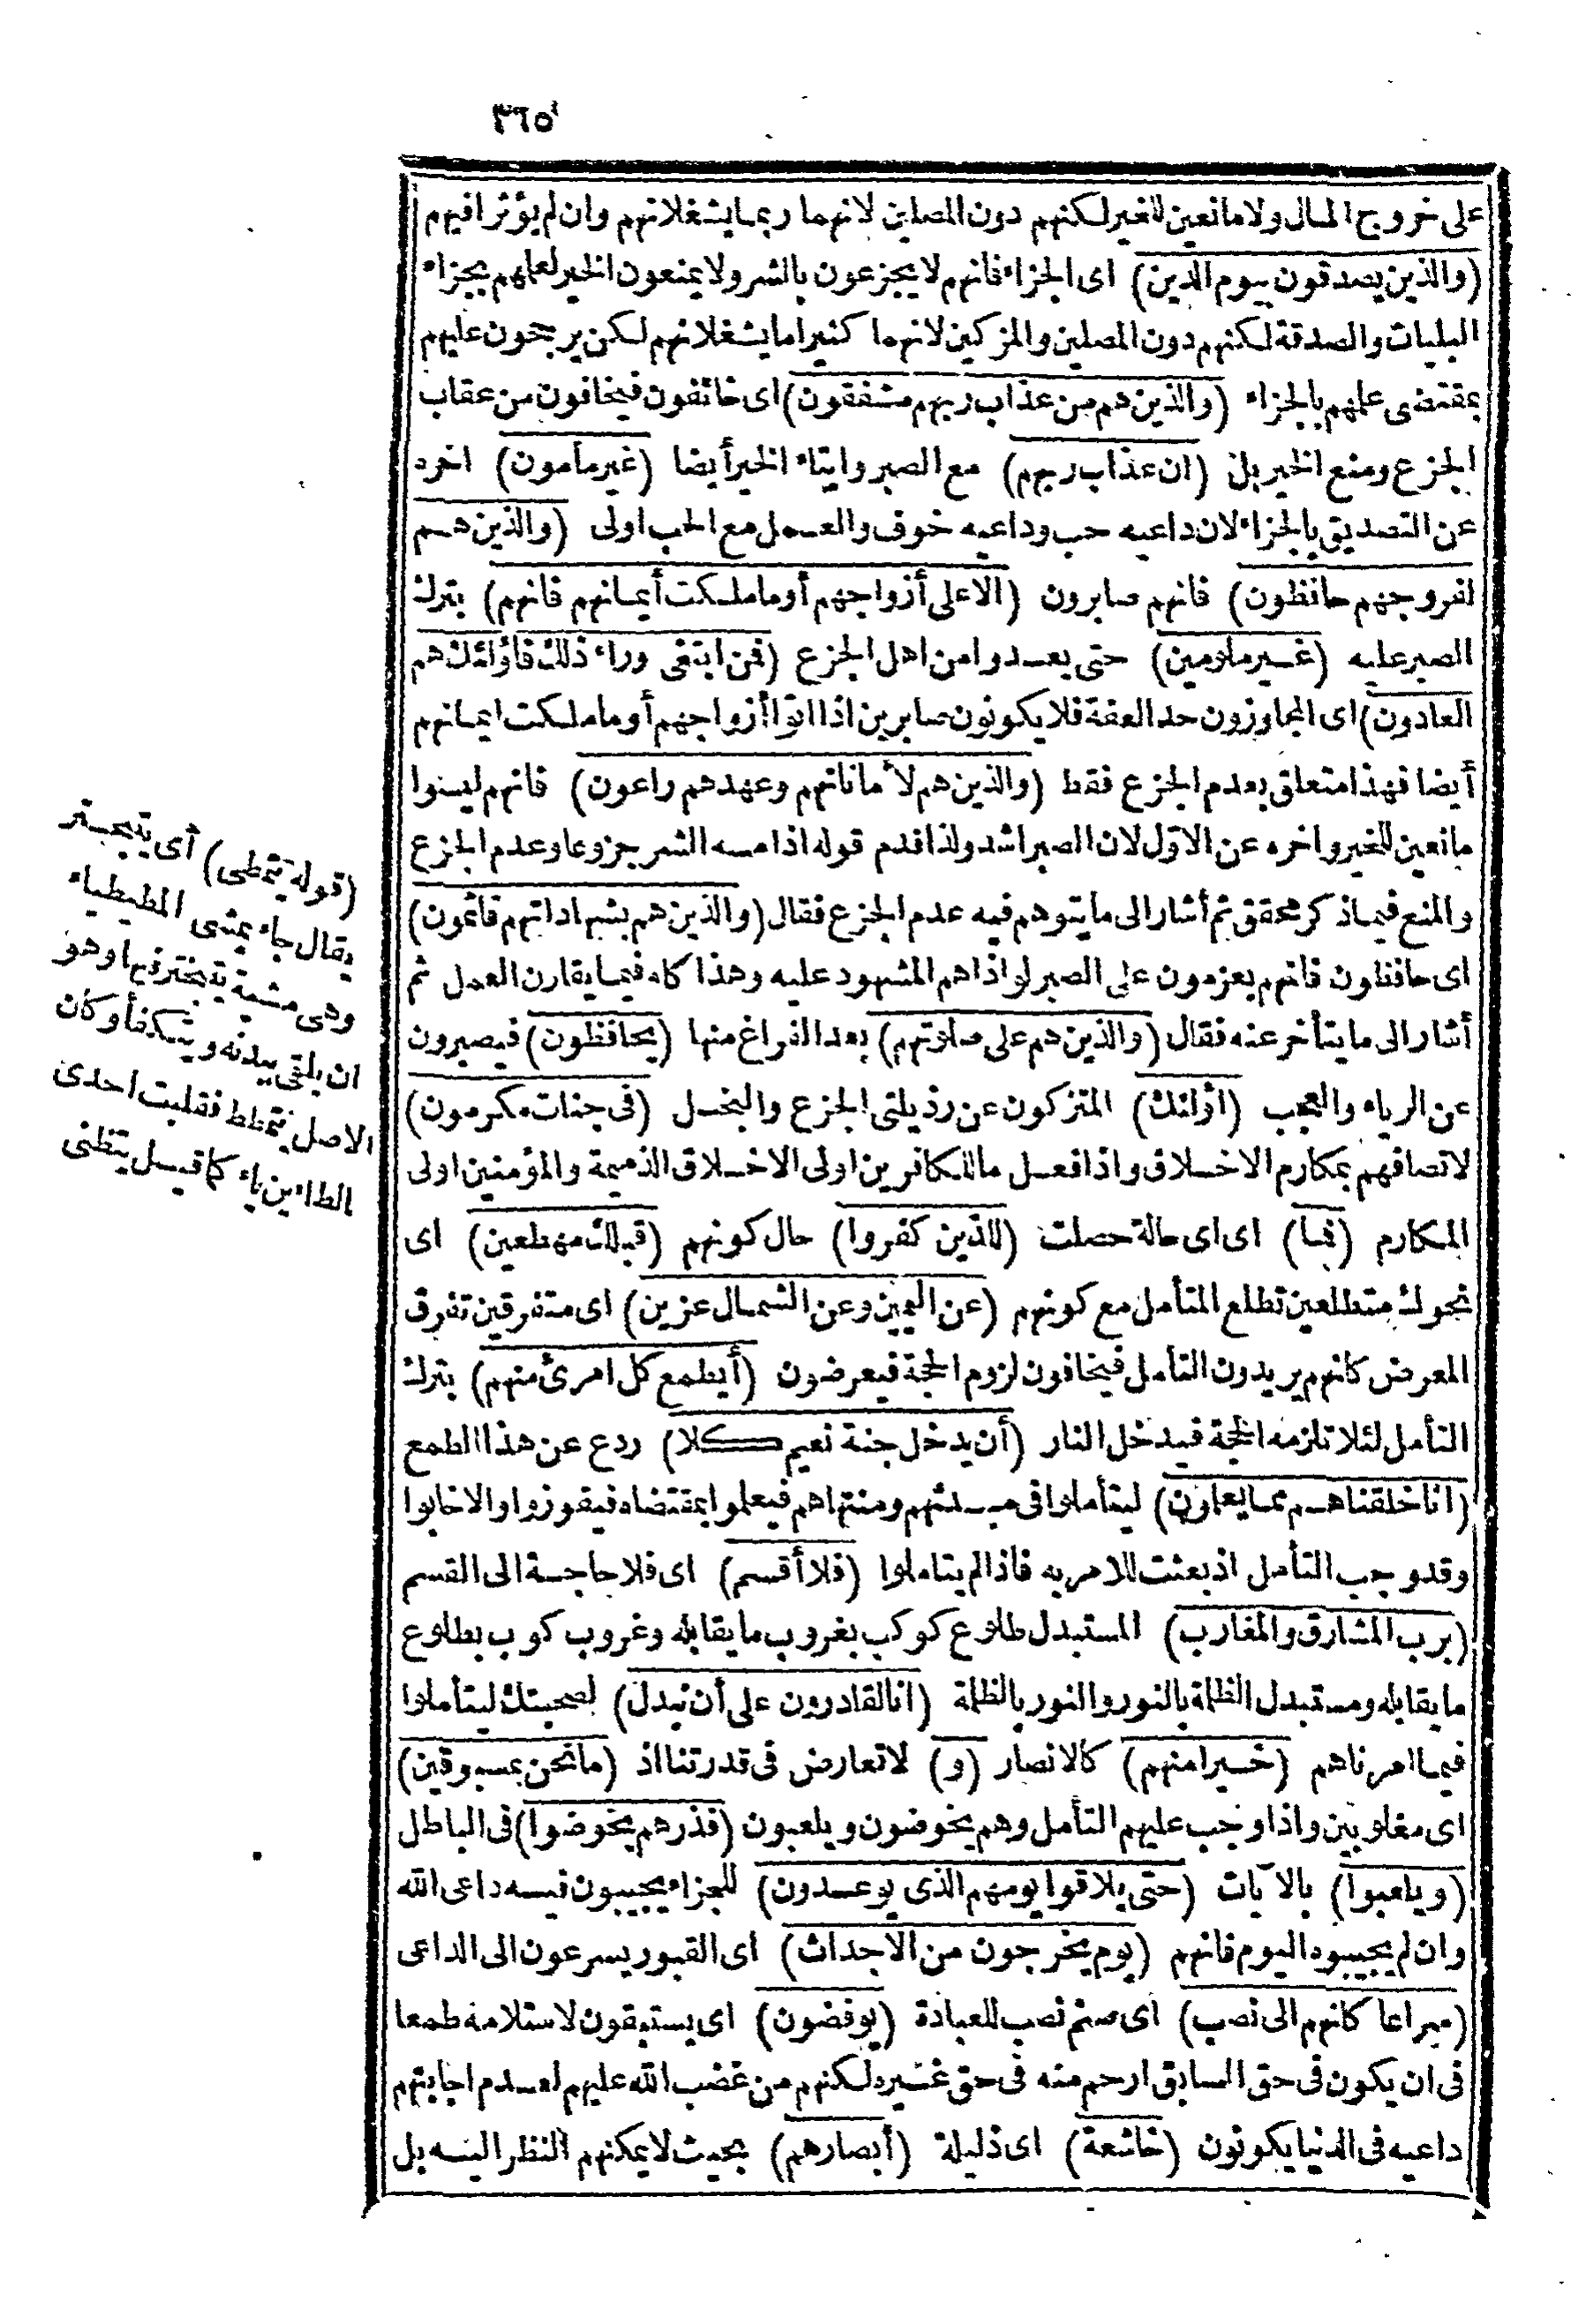 ٣٦٥
على خروج المال ولا مانعين للغير لكنهم دون المصلين لانهما ربما يشغلانهم وان لم يؤثرا فيهم
(والذين يصدقون بيوم الدين) اى الجزاء فانهم لا يجزعون بالشر ولا يمنعون الخير لعلمهم بجزاء
البليات والصدقة لكنهم دون المصلين والمزكين لانهما كثيرا ما يشغلانهم لكن يرجحون عليهم
بمقتضى علمهم بالجزاء (والذين هم من عذاب ربهم مشفقون) اى خائفون فيخافون من عقاب
الجزع ومنع الخير بل (ان عذاب ربهم) مع الصبر وايتاء الخير أيضا (غير مأمون) اخره
عن التصديق بالجزاء لان داعيه حب وداعيه خوف والعمل مع الحب اولى (والذين هم
لفروجهم حافظون) فانهم صابرون (الا على أزواجهم أوما ملكت أيمانهم فانهم) بترك
الصبر عليه (غير ملومين) حتى يعدوا من اهل الجزع (فمن ابتغى وراء ذلك فأولئك هم
العادون) اى المجاوزون حد العفة فلا يكونون صابرين اذا اتوا أزواجهم أوما ملكت ايمانهم
أيضا فهذا متعلق بعدم الجزع فقط (والذين هم لأماناتهم وعهدهم راعون) فانهم ليسوا
مانعين للخير واخره عن الاول لان الصبر اشد ولذا قدم قوله اذا مسه الشر جزوعا وعدم الجزع
والمنع فيما ذكر محقق ثم أشار الى ما يتوهم فيه عدم الجزع فقال (والذين هم بشهاداتهم قائمون)
اى حافظون فانهم يعزمون على الصبر لو اذاهم المشهود عليه وهذا كله فيما يقارن العمل ثم
أشار الى ما يتأخر عنه فقال (والذين هم على صلاتهم) بعد الفراغ منها (يحافظون) فيصيرون
عن الرياء والعجب (اولئك) المتزكون عن رذيلتى الجزع والبخل (فى جنات مكرمون)
لاتصافهم بمكارم الاخلاق واذا فعل ما للكافرين اولى الاخلاق الذميمة والمؤمنين اولى
المكارم (فما) اى اى حالة حصلت (للذين كفروا) حال كونهم (قبلك مهطعين) اى
نحوك متطلعين تطلع المتأمل مع كونهم (عن اليمين وعن الشمال عزين) اى متفرقين تفرق
المعرض كانهم يريدون التأمل فيخافون لزوم الحجة فيعرضون (أيطمع كل امرئ منهم) بترك
التأمل لئلا تلزمه الحجة فيدخل النار (أن يدخل جنة نعيم كلا) ردع عن هذا الطمع
(انا خلقناهم مما يعلمون) ليتأملوا فى مبدئهم ومنتهاهم فيعلموا بمقتضاه فيفوزوا والا خابوا
وقد وجب التأمل اذ بعثت للامر به فاذا لم يتاملوا (فلا أقسم) اى فلا حاجة الى القسم
(برب المشارق والمغارب) المستبدل طلوع كوكب بغروب ما يقابله وغروب كوب بطلوع
ما يقابله ومستبدل الظلمة بالنور والنور بالظلمة (انا لقادرون على أن نبدل) لصحبتك ليتأملوا
فيما امرناهم (خيرا منهم) كالانصار (و) لا تعارض فى قدرتنا اذ (ما نحن بمسبوقين)
اى مغلوبين واذا وجب عليهم التأمل وهم يخوضون ويلعبون (فذرهم يخوضوا) فى الباطل
(ويلعبوا) بالآيات (حتى يلاقوا يومهم الذى يوعدون) للجزاء يجيبون فيه داعى الله
وان لم يجيبوه اليوم فانهم (يوم يخرجون من الاجداث) اى القبور يسرعون الى الداعى
(سراعا كانهم الى نصب) اى صنم نصب للعبادة (يوفضون) اى يستبقون لاستلامه طمعا
فى ان يكون فى حق السابق ارحم منه فى حق غيره لكنهم من غضب الله عليهم لعدم اجابتهم
داعيه فى الدنيا يكونون (خاشعة) اى ذليلة (أبصارهم) بحيث لا يمكنهم النظر اليه بل
(قوله يتمطى) أى يتبختر
يقال جاء يمشى المطيطياء
وهى مشية يتبختر فيها وهو
ان يلقى بيدنه ويتكفأ وكان
الاصل يتمطط فقلبت احدى
الطاءين ياء كما قيل يتظنى